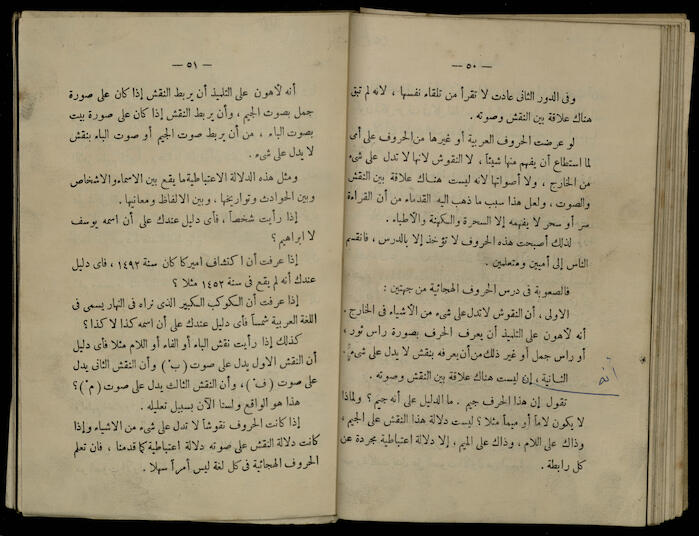 — ٥٠ —
وفى الدور الثانى عادت لا تقرأ من تلقاء نفسها ، لانه لم تبق
هناك علاقة بين النقش وصوته .
لو عرضت الحروف العربية أو غيرها من الحروف على أمى
لما استطاع أن يفهم منها شيئاً ، لا النقوش لانها لا تدل على شىء
من الخارج ، ولا أصواتها لانه ليست هناك علاقة بين النقش
والصوت ، ولعل هذا سبب ما ذهب اليه القدماء من أن القراءة
سر أو سحر لا يفهمه إلا السحرة والكهنة والأطباء .
لذلك أصبحت هذه الحروف لا تؤخذ إلا بالدرس ، فانقسم
الناس إلى أميين ومتعلمين .
فالصعوبة فى درس الحروف الهجائية من جهتين :
الاولى ، أن النقوش لا تدل على شىء من الأشياء فى الخارج .
أنه لأهون على التلميذ أن يعرف الحرف بصورة راس ثور ،
أو راس جمل أو غير ذلك من أن يعرفه بنقش لا يدل على شىء .
أنه
الثانية ، إن ليست هناك علاقة بين النقش وصوته .
تقول إن هذا الحرف جيم . ما الدليل على أنه جيم ؟ ولماذا
لا يكون لاماً أو ميماً مثلا ؟ ليست دلالة هذا النقش على الجيم ،
وذاك على اللام ، وذاك على الميم ، إلا دلالة اعتباطية مجردة عن
كل رابطة .
— ٥١ —
أنه لأهون على التلميذ أن يربط النقش إذا كان على صورة
جمل بصوت الجيم ، وأن يربط النقش إذا كان على صورة بيت
بصوت الباء ، من أن يربط صوت الجيم أو صوت الباء بنقش
لا يدل على شىء .
ومثل هذه الدلالة الاعتباطية ما يقع بين الاسماء والاشخاص
وبين الحوادث وتواريخها ، وبين الالفاظ ومعانيها .
إذا رأيت شخصاً ، فأى دليل عندك على أن اسمه يوسف
لا ابراهيم ؟
إذا عرفت أن اكتشاف اميركا كان سنة ١٤٩٢ ، فأى دليل
عندك أنه لم يقع فى سنة ١٤٥٢ مثلا ؟
إذا عرفت أن الكوكب الكبير الذى نراه فى النهار يسمى فى
اللغة العربية شمساً فأى دليل عندك على أن اسمه كذا لا كذا ؟
كذلك إذا رأيت نقش الباء أو الفاء أو اللام مثلا فأى دليل
أن النقش الاول يدل على صوت (ب ْ) وأن النقش الثانى يدل
على صوت (ف ْ) ، وأن النقش الثالث يدل على صوت (م ْ) ؟
هذا هو الواقع ولسنا الآن بسبيل تعليله .
إذا كانت الحروف نقوشاً لا تدل على شىء من الاشياء وإذا
كانت دلالة النقش على صوته دلالة اعتباطية كما قدمنا ، فان تعلم
الحروف الهجائية فى كل لغة ليس أمراً سهلا .